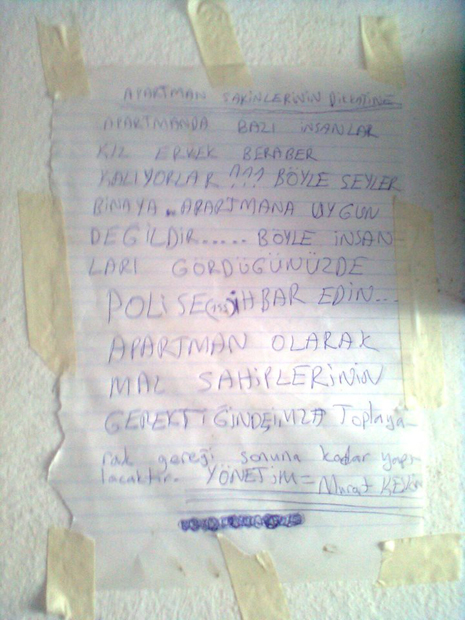 APARTMAN SAKİNLERİNİN DİKKATİNE
APARTMANDA BAZI İNSANLAR
KIZ ERKEK BERABER
KALIYORLAR ??? BÖYLE ŞEYLER
BİNAYA APARTMANA UYGUN
DEĞİLDİR..... BÖYLE İNSAN-
LARI GÖRDÜĞÜNÜZDE
POLİSE(155) İHBAR EDİN...
APARTMAN OLARAK
MAL SAHİPLERİNİN
GEREKTİĞİNDE İMZA Toplaya-
rak gereği sonuna kadar yapı-
lacaktır. YÖNETİM = Murat